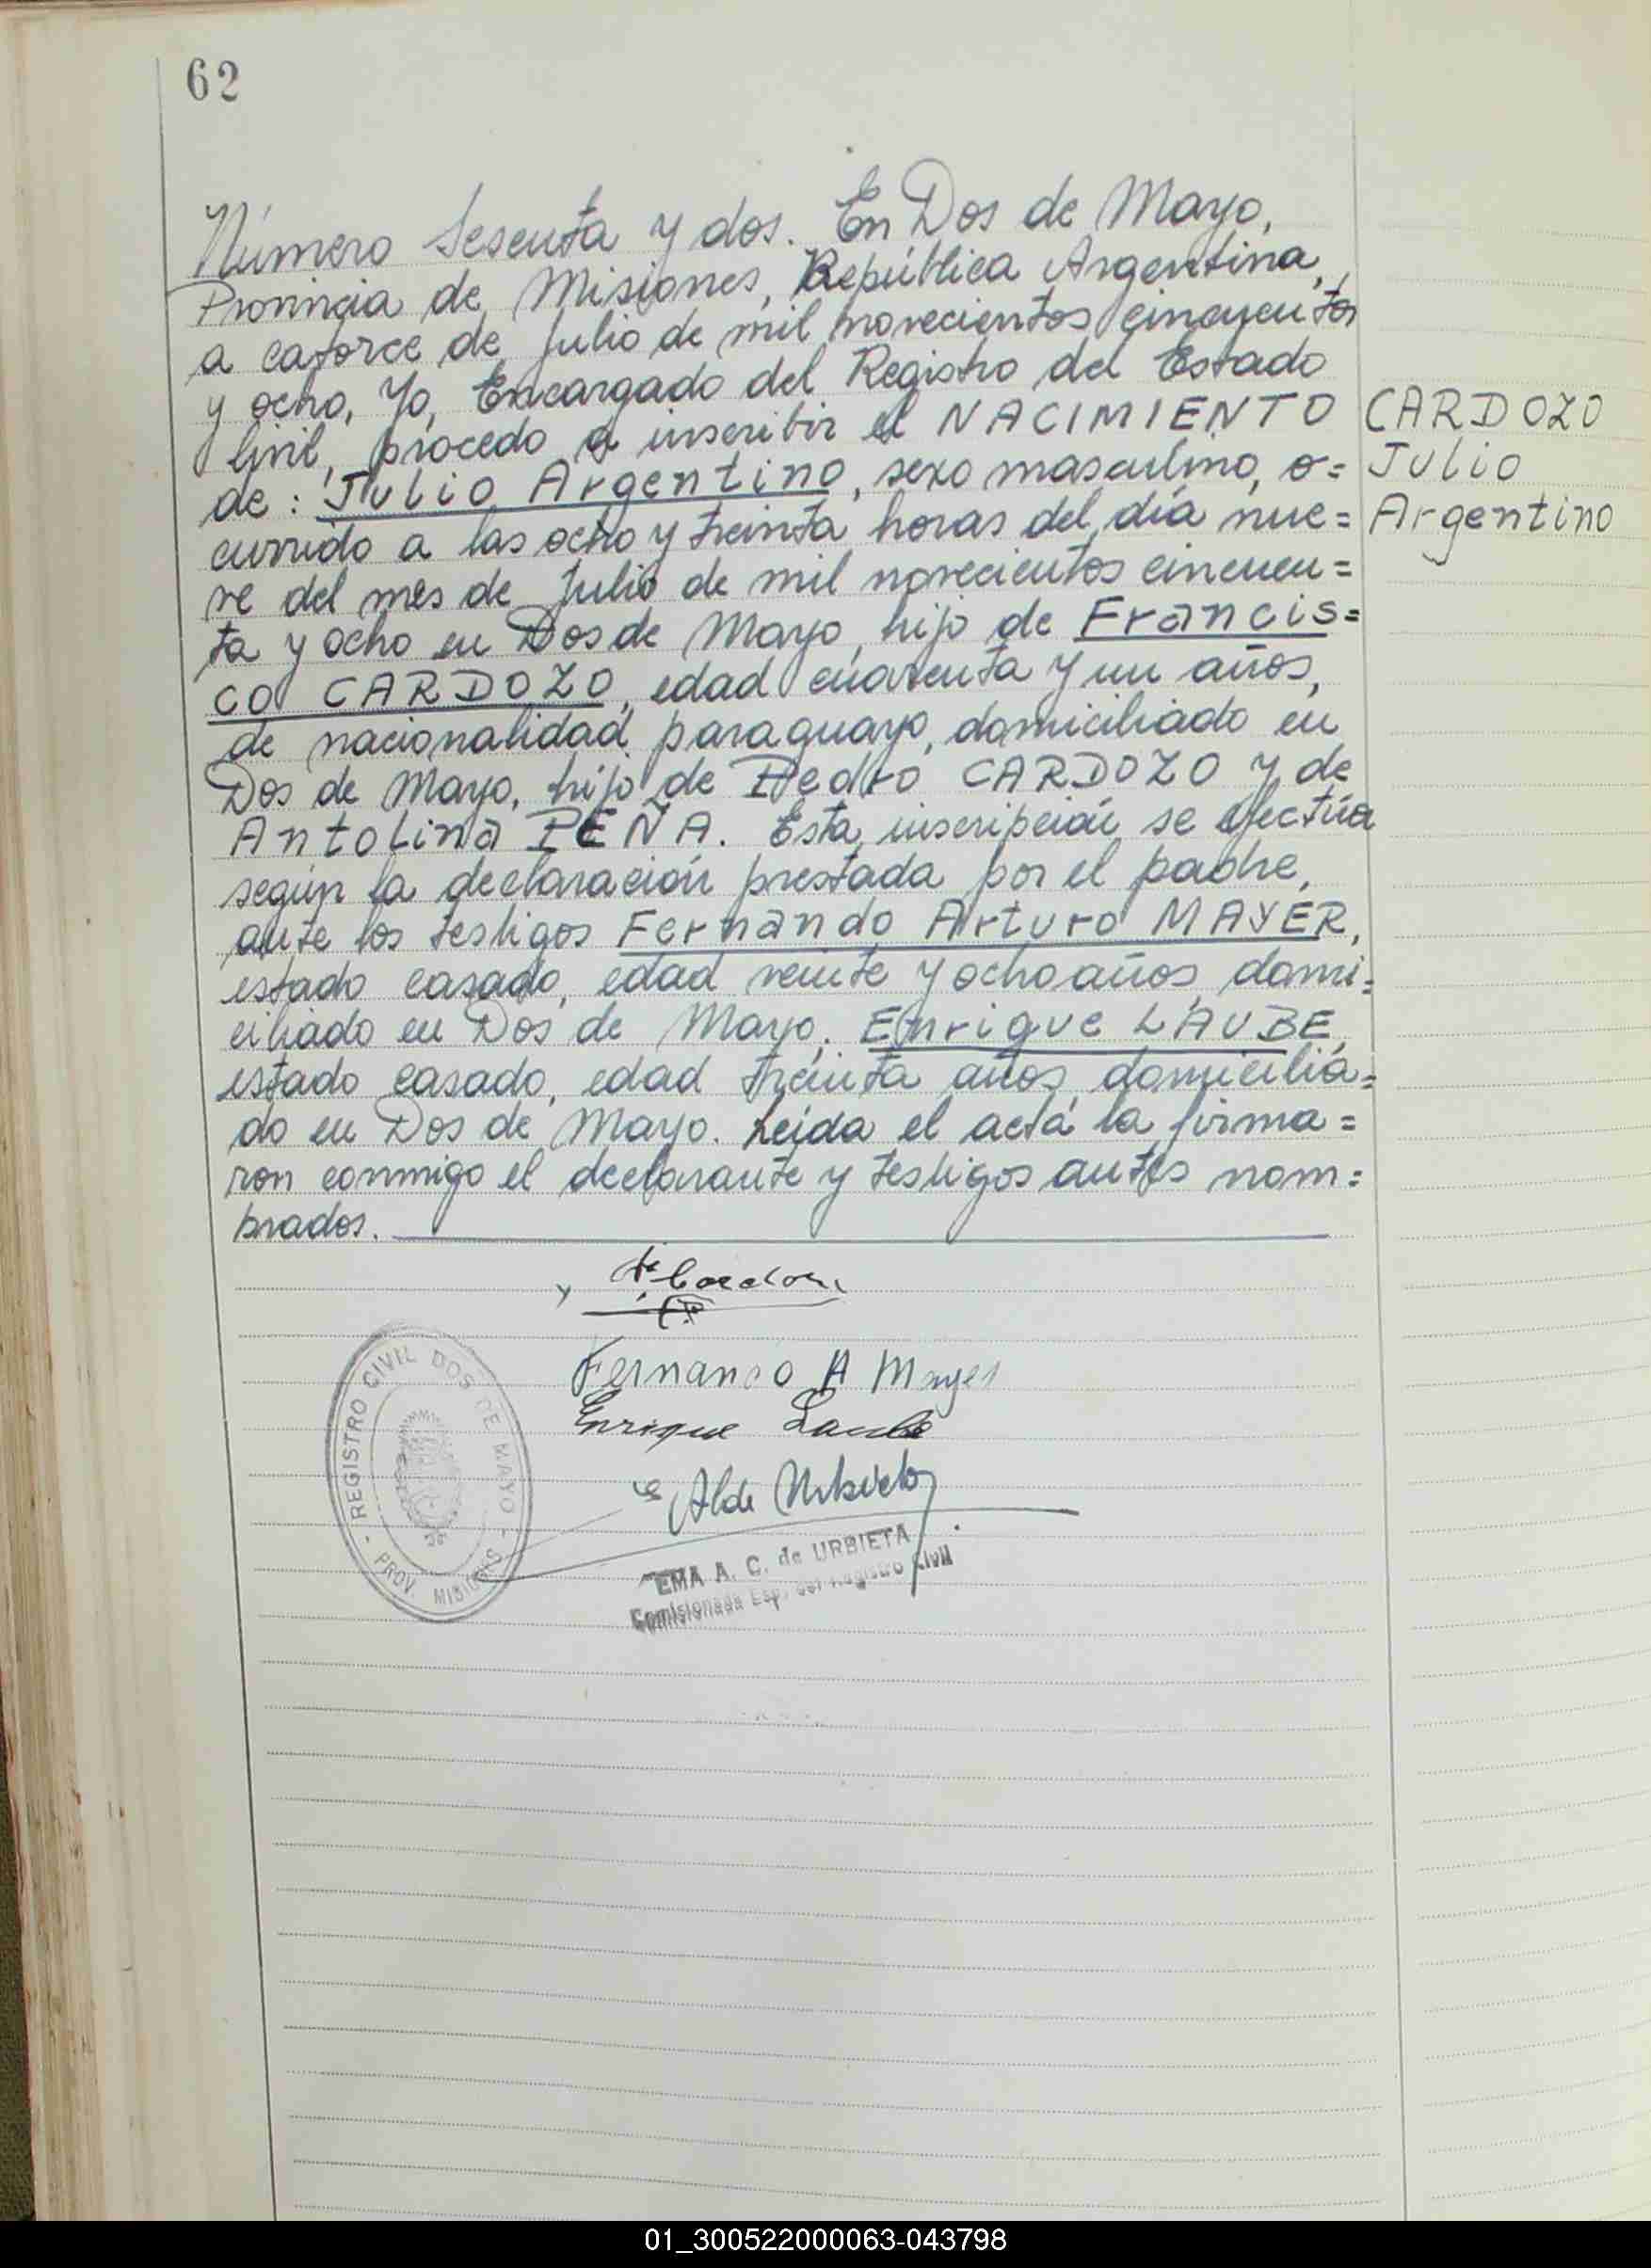 62
Número Sesenta y dos. En Dos de Mayo,
Provincia de Misiones, República Argentina,
a catorce de Julio de mil novecientos cincuenta
y ocho, Yo, Encargado del Registro del Estado
Civil, procedo a inscribir el NACIMIENTO
de: Julio Argentino, sexo masculino, o=
currido a las ocho y treinta horas del día nue=
ve del mes de Julio de mil novecientos cincuen=
ta y ocho en Dos de Mayo, hijo de Francis=
co CARDOZO, edad cuarenta y un años,
de nacionalidad paraguayo, domiciliado en
Dos de Mayo, hijo de Pedro CARDOZO y de
Antolina PEÑA. Esta inscripción se efectúa
según la declaración prestada por el padre,
ante los testigos Fernando Arturo MAYER,
estado casado, edad veinte y ocho años, domi=
ciliado en Dos de Mayo, Enrique LAUBE,
estado casado, edad treinta años, domicilia=
do en Dos de Mayo. Leída el acta la firma=
ron conmigo el declarante y testigos antes nom=
brados.
CARDOZO
Julio
Argentino
Fernando A Mayer
Enrique Laube
REGISTRO CIVIL DOS DE MAYO - PROV. MISIONES -
EMA A. C. de URBIETA
Comisionada Esp. del Registro Civil
01_300522000063-043798